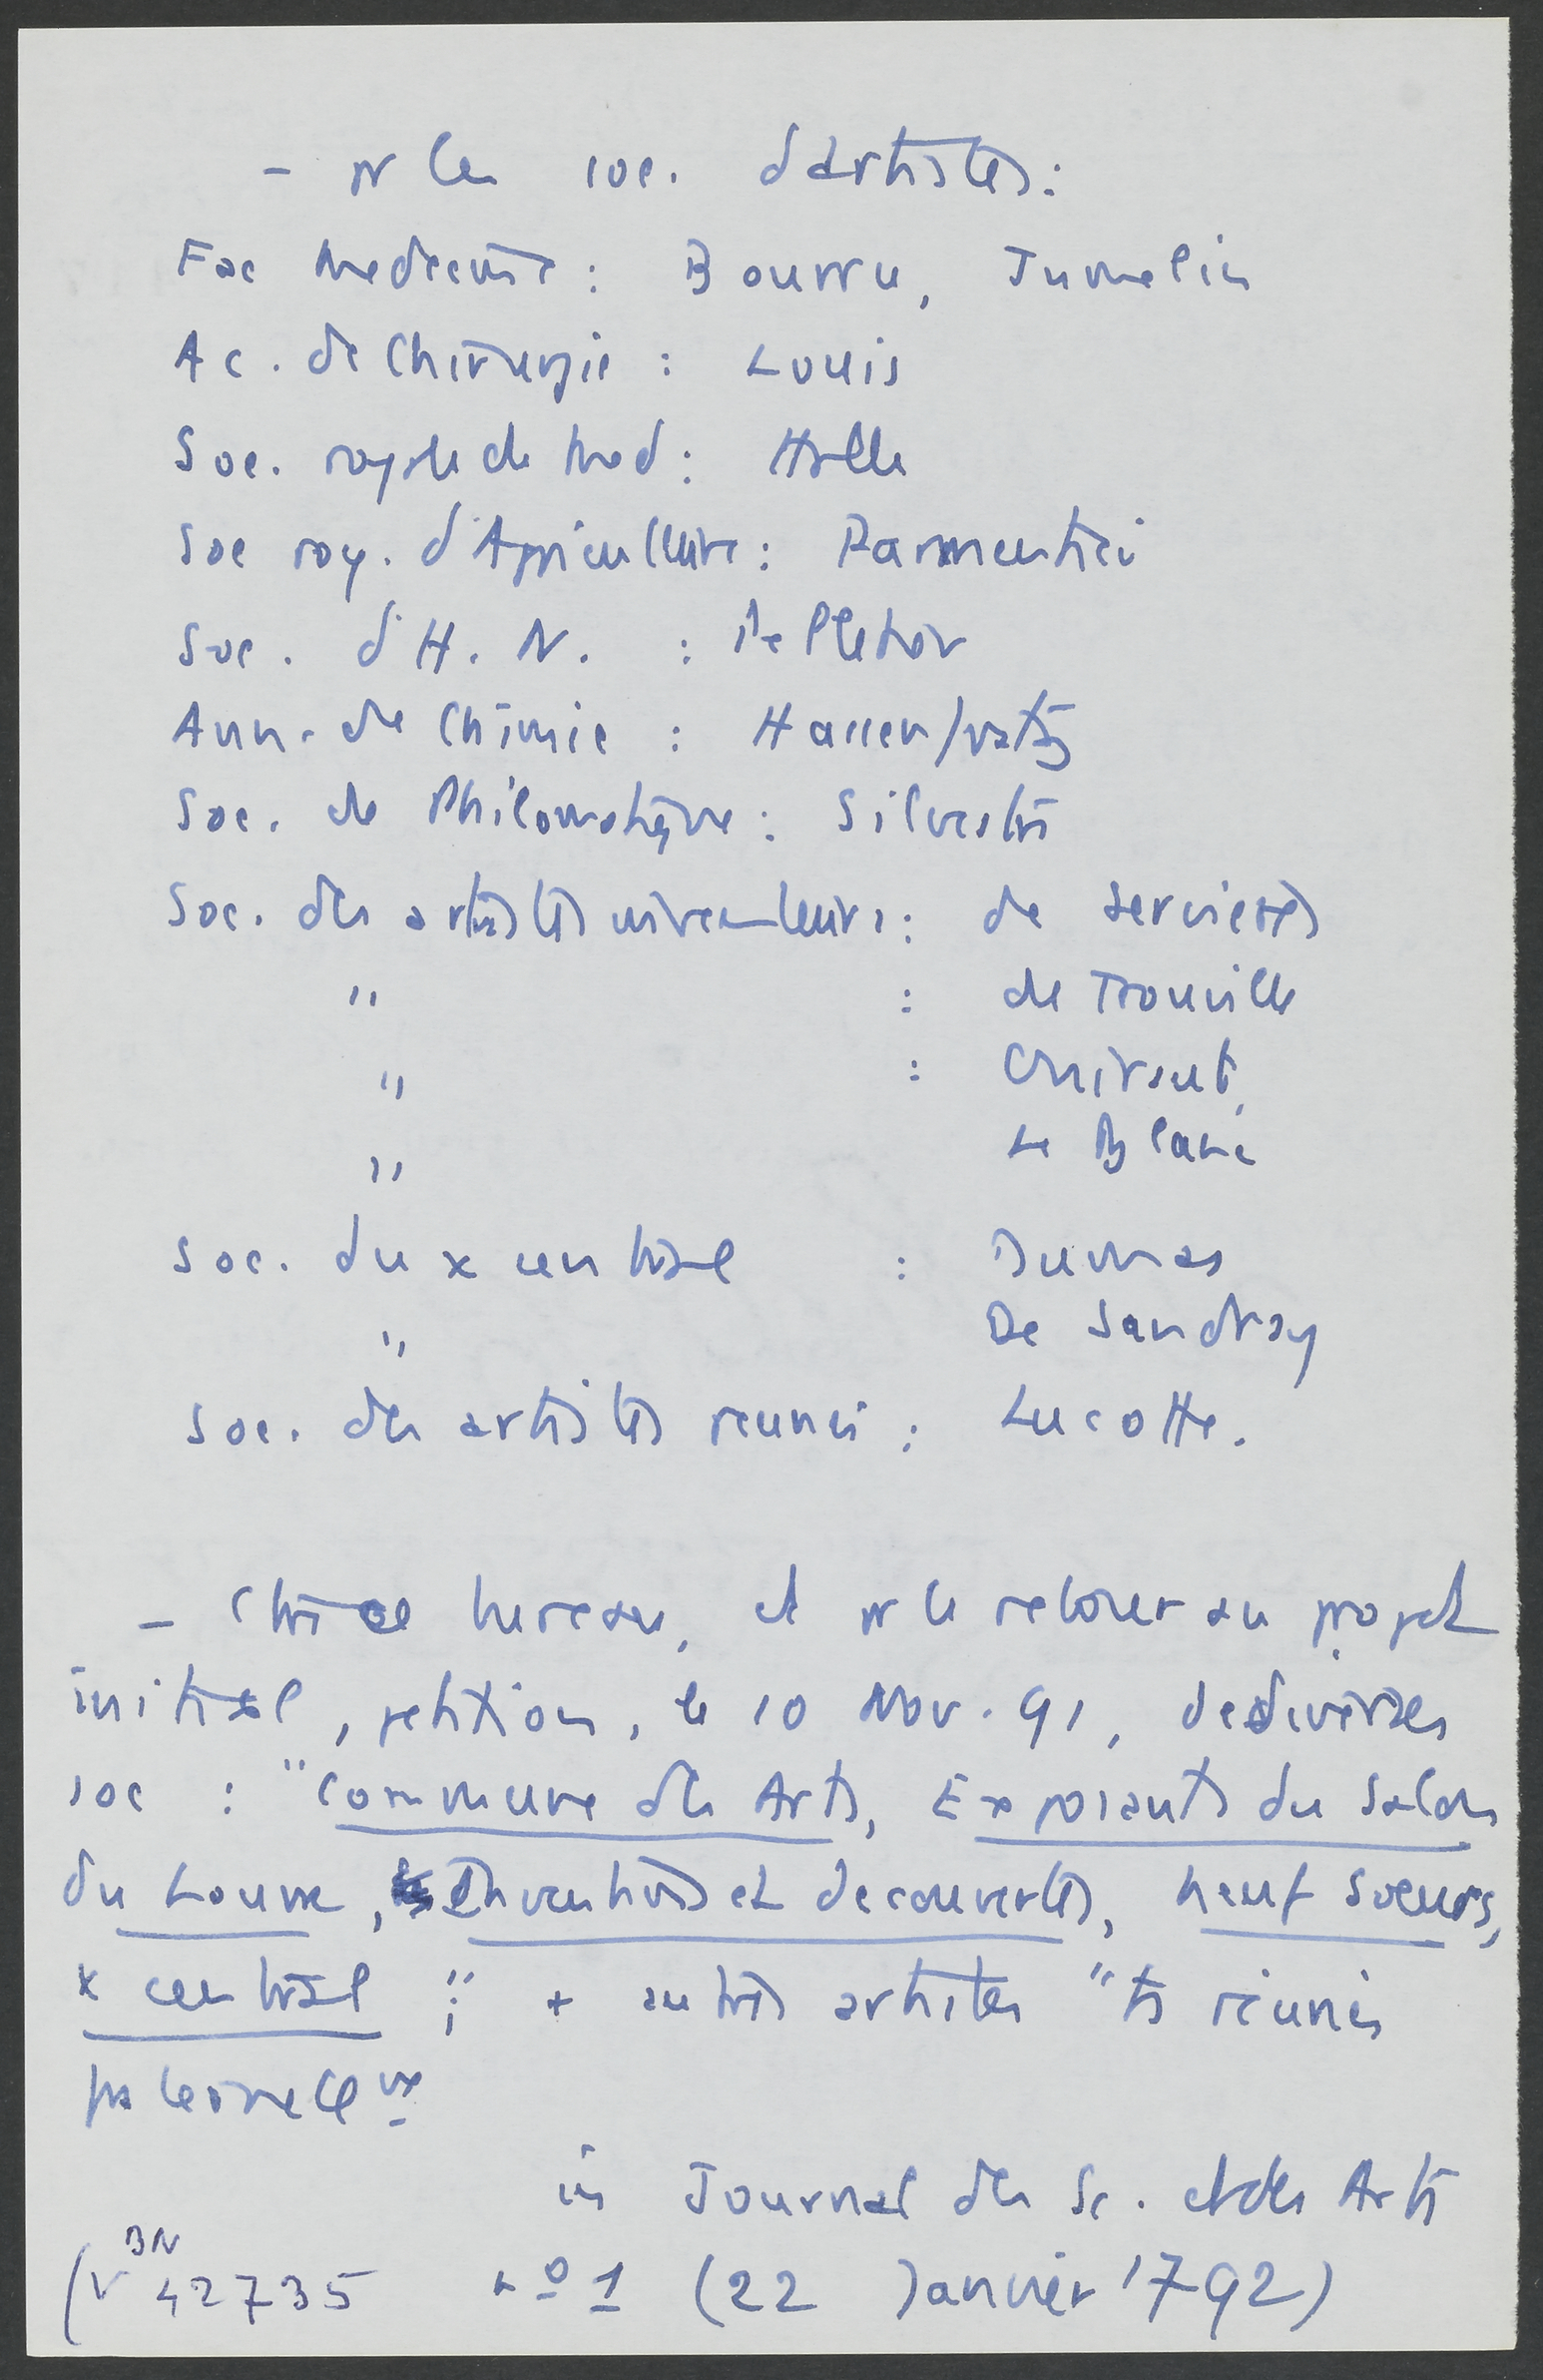 - pr les soc. d'artistes :
Fac Medecine : Bourru, Jumelin
Ac. de Chirurgie : Louis
Soc. royale de Med : Halle
Soc roy. d'Agriculture : Parmentier
Soc. d'H. N. : Pelletier
Ann. de Chimie : Hassenfratz
Soc. de Philomatique : Silvestre
Soc. des artistes inventeurs : de Servieres
" : de Trouville
" :
" Le Blanc
Soc. du x central : Dumas
" De Sandray
Soc. des artistes reunis : Lucotte.
- Contre ce bureau, et pr le retour au projet
initial, petition, le 10 Nov. 91, de diverses
soc : "Commune des Arts, Exposants du Salon
du Louvre, Inventions et decouvertes, neuf soeurs,
x central ;" + autres artistes "ts réunis
fraternellt
in Journal des Sc. et des Arts
(BN V 42735 no 1 (22 Janvier 1792)